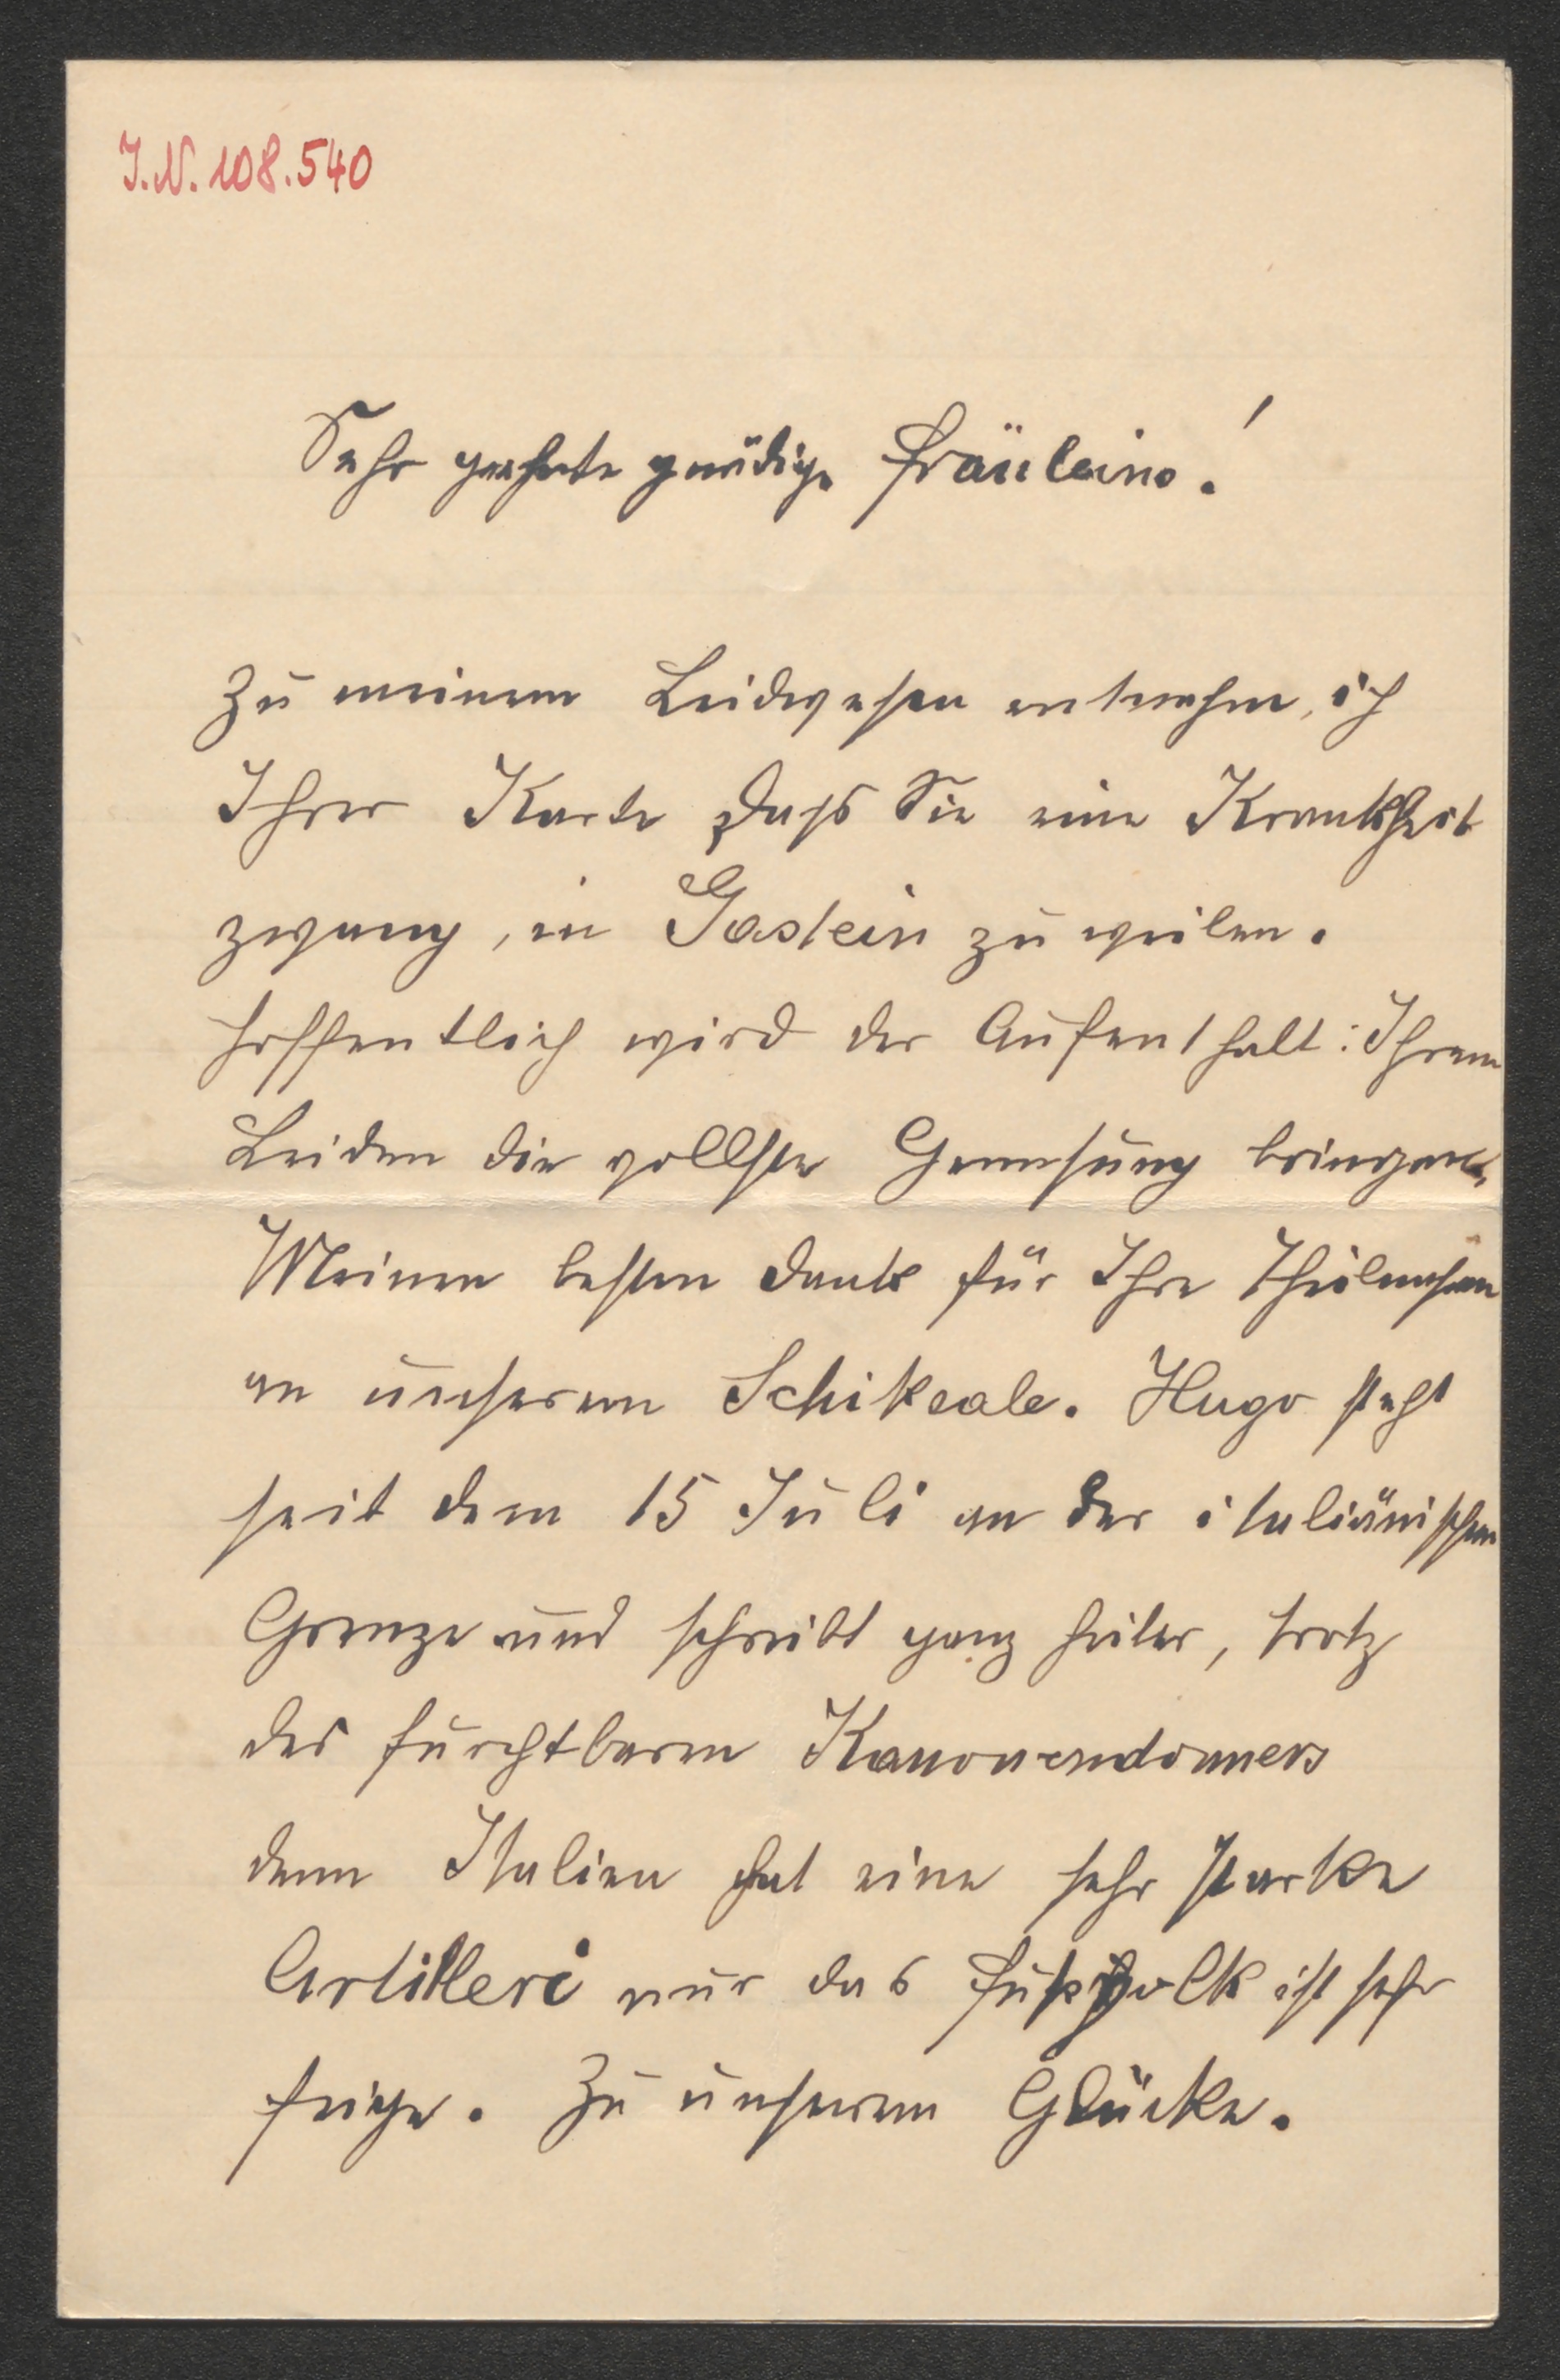 I.N. 108.540
Sehr geehrte gnädige Fräulein!
Zu meinem Leidwesen entnehme ich
Ihrer Karte dass Sie eine Krankheit
zwang, in Gastein zu weilen.
Hoffentlich wird der Aufenthalt Ihrem
Leiden die vollste Genesung bringen.
Meinen besten Dank für Ihre Theilnahme
an unserem Schiksale. Hugo steht
seit dem 15 Juli an der italiänischen
Grenze und schreibt ganz heiter, trotz
des furchtbaren Kanonendonners
denn Italien hat eine sehr starke
Artilleri nur das Fußvolk ist sehr
feige. Zu unserem Glücke.